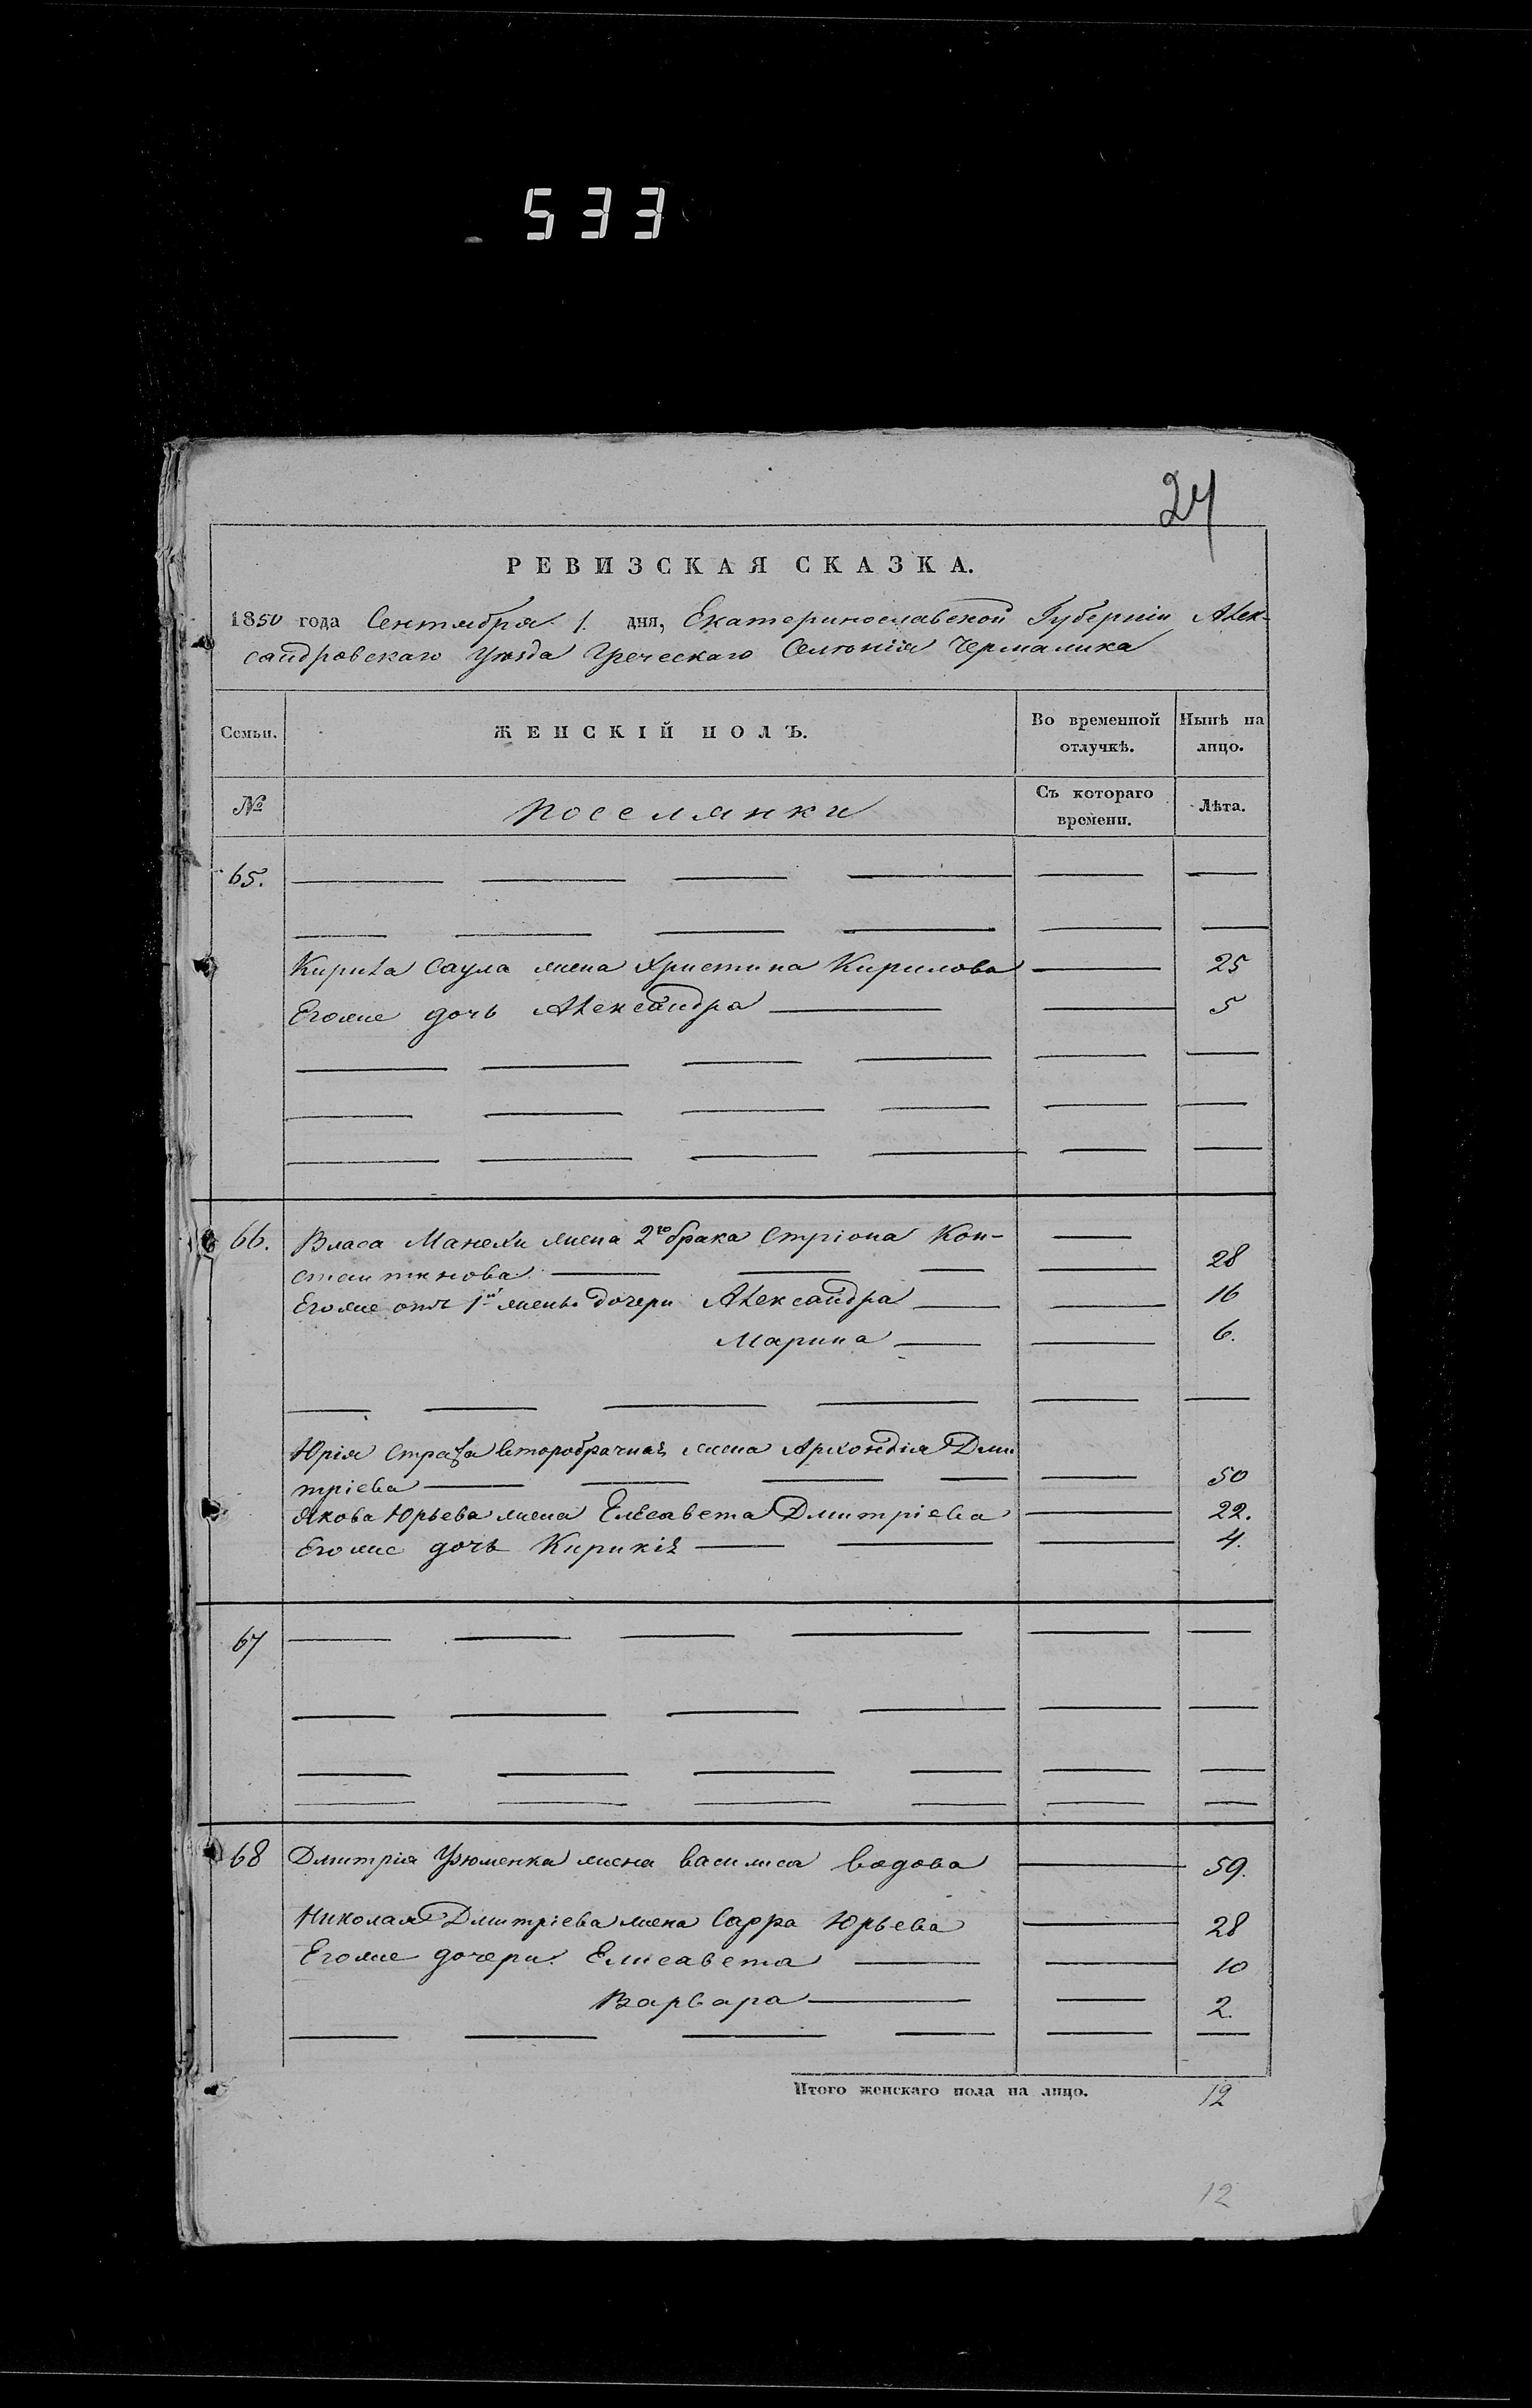 533
24
РЕВИЗСКАЯ СКАЗКА.
1850 года Сентября 1. дня, Екатеринославской Губерніи Алек-
сандровскаго Уѣзда Греческаго Селенія Чермалика
Семьи. ЖЕНСКІЙ ПОЛЪ. Во временной отлучкѣ. Нынѣ на лицо.
№ Поселянки Съ котораго времени. Лѣта.
65.
Кирила Саула жена Христина Кирилова 25
Егоже дочь Александра 5
66. Власа Манехи жена 2го брака Стріона Кон-
стантинова 28
Егоже отъ 1й жены дочери Александра 16
Марина 6.
Юрія второбрачная жена Архондія Дми
тріева 50
Якова Юрьева жена Елисавета Дмитріева 22.
Егоже дочь Кирикія 4.
67
68 Дмитрія Узюменка жена Василиса вдова 59.
Николая Дмитріева жена Сарра Юрьева 28
Егоже дочери Елисавета 10
Варвара 2.
Итого женскаго пола на лицо. 12
12